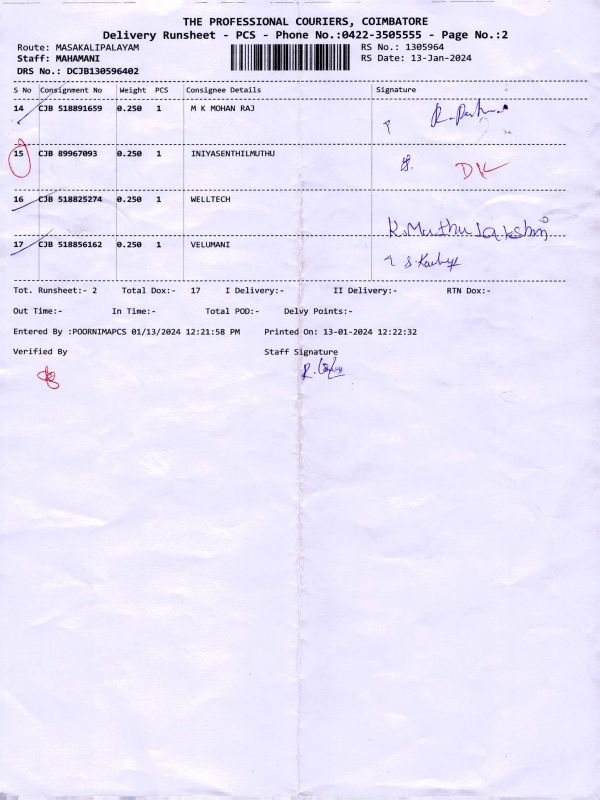 THE PROFESSIONAL COURIERS, COIMBATORE
Delivery Runsheet - PCS - Phone No.:0422-3505555 - Page No.:2
Route: MASAKALIPALAYAM RS No.: 1305964
Staff: MAHAMANI RS Date: 13-Jan-2024
DRS No.: DCJB130596402
S No Consignment No Weight PCS Consignee Details Signature
14 CJB 518891659 0.250 1 M K MOHAN RAJ
15 CJB 89967093 0.250 1 INIYASENTHILMUTHU DK
16 CJB 518825274 0.250 1 WELLTECH K.Muthulakshmi
17 CJB 518856162 0.250 1 VELUMANI
Tot. Runsheet:- 2 Total Dox:- 17 I Delivery:- II Delivery:- RTN Dox:-
Out Time:- In Time:- Total POD:- Delvy Points:-
Entered By :POORNIMAPCS 01/13/2024 12:21:58 PM Printed On: 13-01-2024 12:22:32
Verified By Staff Signature